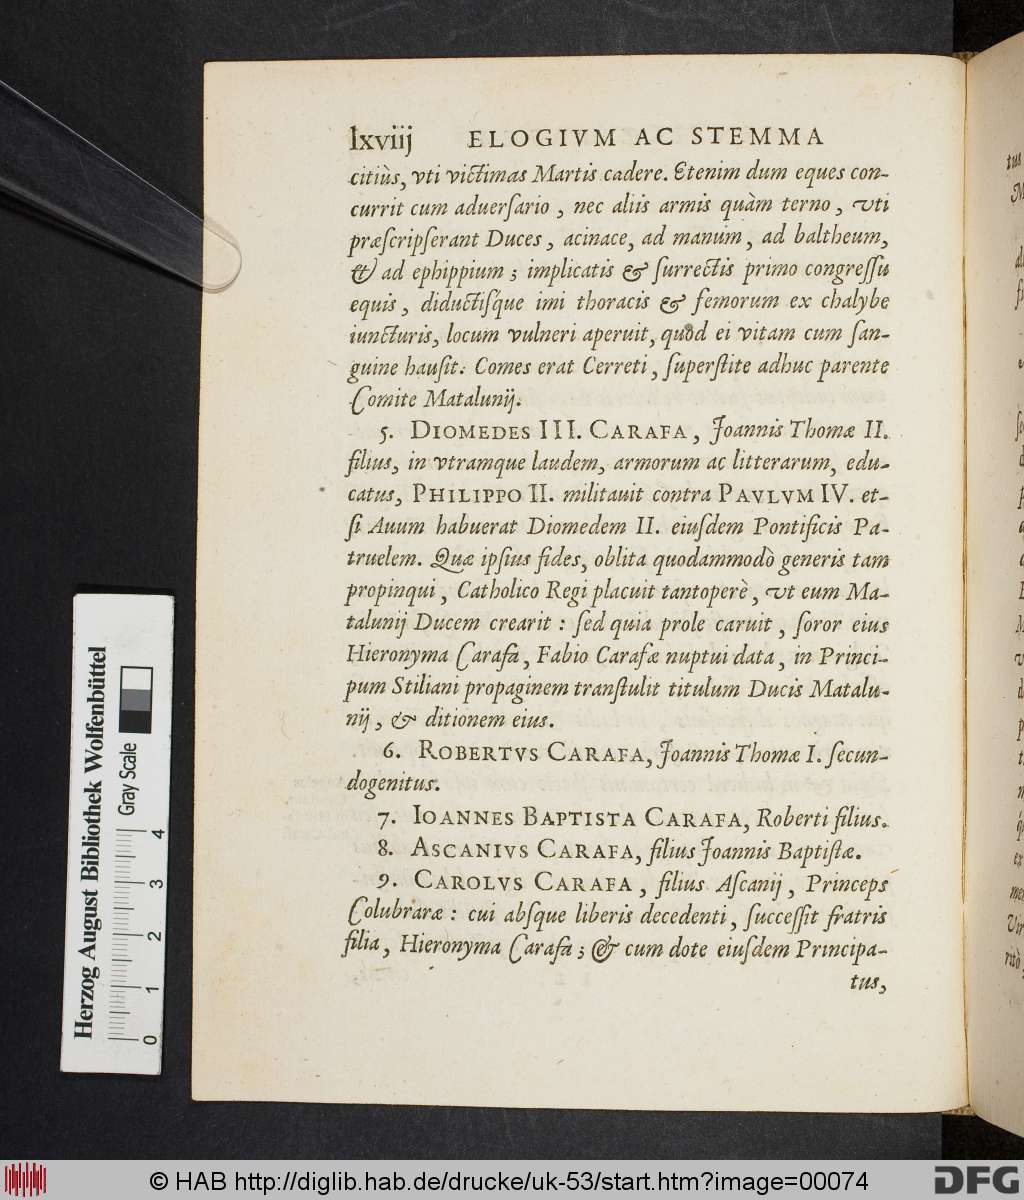 lxviij ELOGIVM AC STEMMA
citiùs, vti victimas Martis cadere. Etenim dum eques con-
currit cum aduerſario, nec aliis armis quàm terno, vti
præſcripſerant Duces, acinace, ad manum, ad baltheum,
& ad ephippium; implicatis & ſurrectis primo congreſſu
equis, diductiſque imi thoracis & femorum ex chalybe
iuncturis, locum vulneri aperuit, quod ei vitam cum ſan-
guine hauſit. Comes erat Cerreti, ſuperſtite adhuc parente
Comite Matalunij.
5. DIOMEDES III. CARAFA, Joannis Thomæ II.
filius, in vtramque laudem, armorum ac litterarum, edu-
catus, PHILIPPO II. militauit contra PAVLVM IV. et-
ſi Auum habuerat Diomedem II. eiuſdem Pontificis Pa-
truelem. Quæ ipſius fides, oblita quodammodò generis tam
propinqui, Catholico Regi placuit tantoperè, vt eum Ma-
talunij Ducem crearit: ſed quia prole caruit, ſoror eius
Hieronyma Carafa, Fabio Carafæ nuptui data, in Princi-
pum Stiliani propaginem tranſtulit titulum Ducis Matalu-
nij, & ditionem eius.
6. ROBERTVS CARAFA, Joannis Thomæ I. ſecun-
dogenitus.
7. IOANNES BAPTISTA CARAFA, Roberti filius.
8. ASCANIVS CARAFA, filius Joannis Baptiſtæ.
9. CAROLVS CARAFA, filius Aſcanij, Princeps
Colubraræ: cui abſque liberis decedenti, ſucceſſit fratris
filia, Hieronyma Carafa; & cum dote eiuſdem Principa-
tus,
Herzog August Bibliothek Wolfenbüttel
Gray Scale
0 1 2 3 4
© HAB http://diglib.hab.de/drucke/uk-53/start.htm?image=00074
DFG